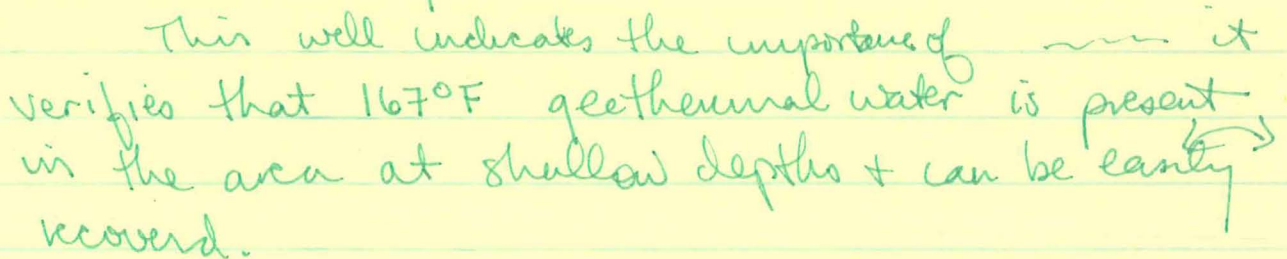 This well indicates the importance of ~~~ it
verifies that 167°F geothermal water is present
in the area at shallow depths + can be easily
recoverd.